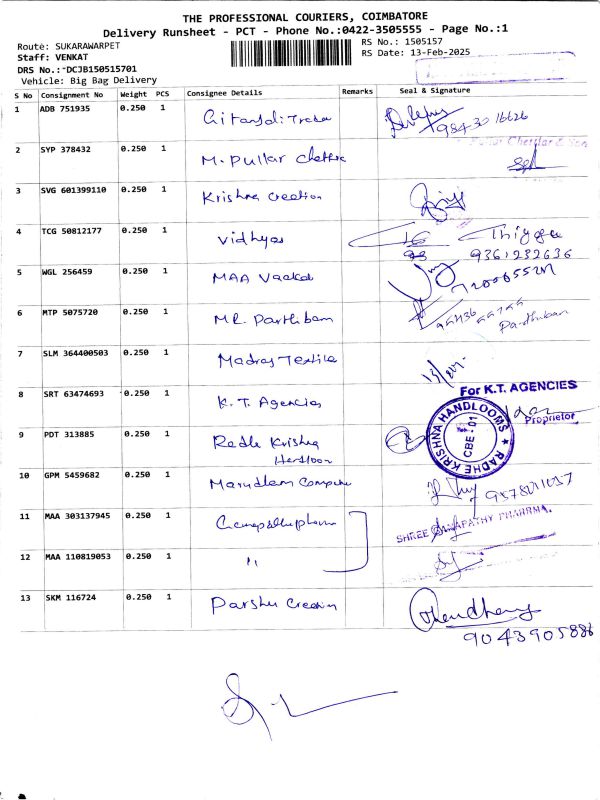 THE PROFESSIONAL COURIERS, COIMBATORE
Delivery Runsheet - PCT - Phone No.:0422-3505555 - Page No.:1
Route: SUKARAWARPET
RS No.: 1505157
Staff: VENKAT
RS Date: 13-Feb-2025
DRS No.: DCJB150515701
Vehicle: Big Bag Delivery
S No Consignment No Weight PCS Consignee Details Remarks Seal & Signature
1 ADB 751935 0.250 1
98430 16626
2 SYP 378432 0.250 1 M. Pullar
3 SVG 601399110 0.250 1 Krishna Creation
4 TCG 50812177 0.250 1 Vidhyas
9361232636
5 WGL 256459 0.250 1 MAA
6 MTP 5075720 0.250 1 MR. Parthibam
Parthiban
7 SLM 364400503 0.250 1 Madras Textile
8 SRT 63474693 0.250 1 K.T. Agencies
For K.T. AGENCIES
Proprietor
9 PDT 313885 0.250 1 Radhe Krishna
RADHE KRISHNA HANDLOOMS
CBE - 01
10 GPM 5459682 0.250 1
11 MAA 303137945 0.250 1
SHREE
12 MAA 110819053 0.250 1 "
13 SKM 116724 0.250 1 Parshu Creation
9043905886